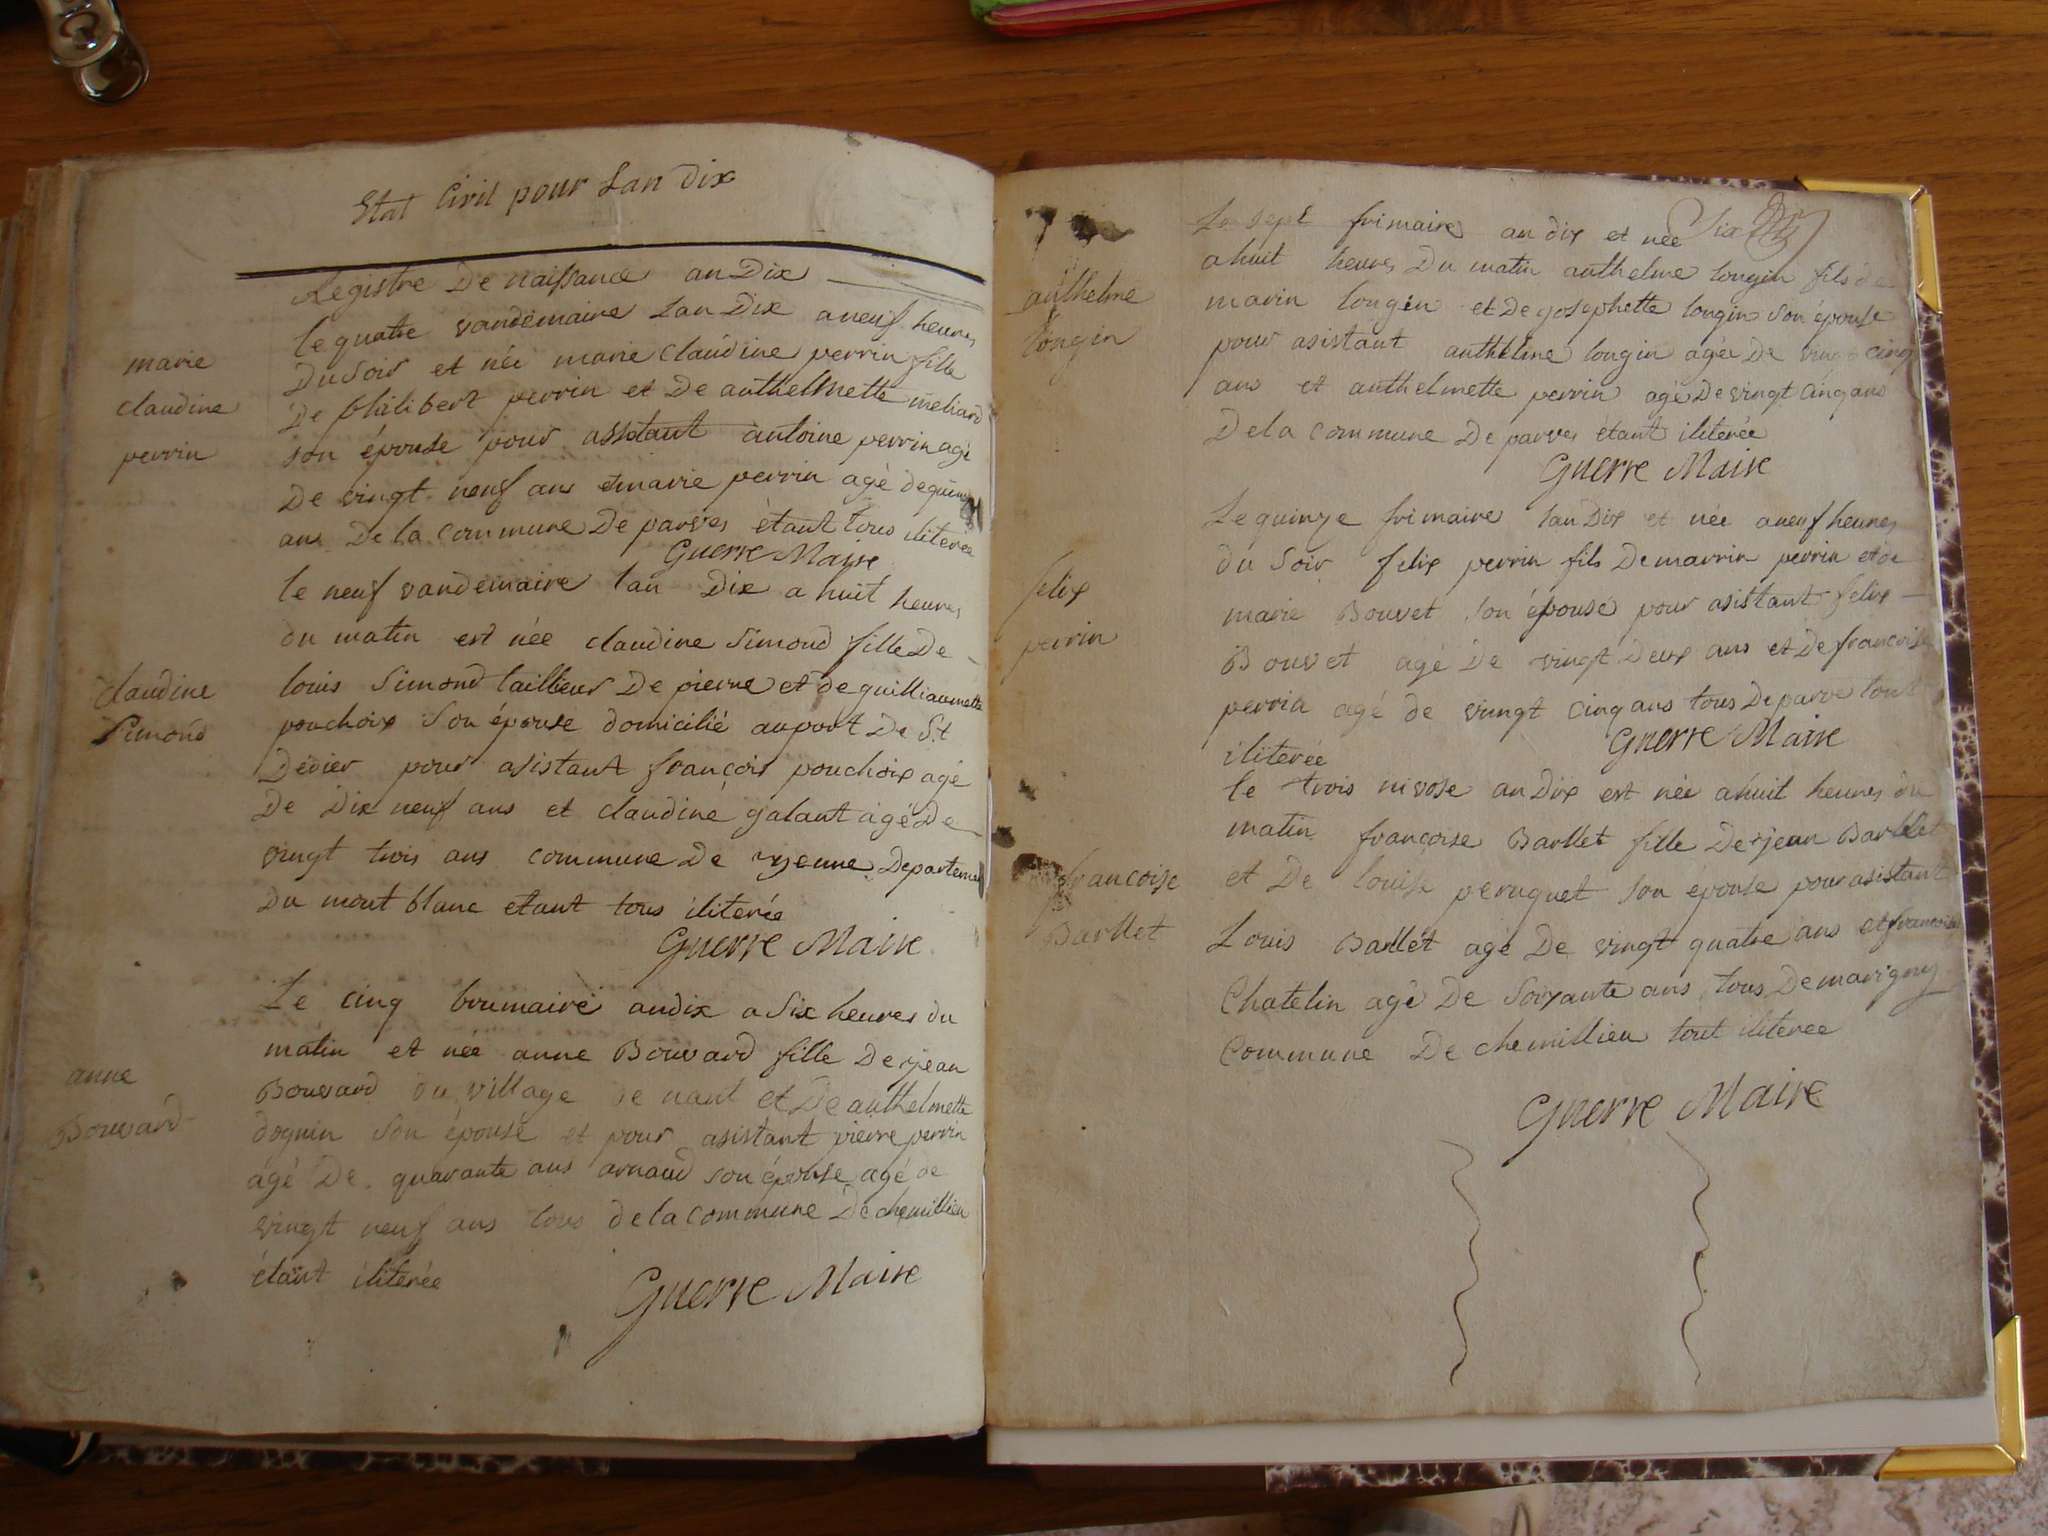 Etat Civil pour Lan Dix
Registre De naissance an Dix
le quatre vandemaire Lan Dix a neuf heures
Du Soir et née marie Claudine perrin fille
De philibert perrin et De anthelmette meliard
son épouse pour assistant antoine perrin agé
De vingt neuf ans et marie perrin agé de quinze
ans De la commune De parves étant tous iliterée
Guerre Maire
marie
claudine
perrin
le neuf vandemaire lan Dix a huit heures
du matin est née claudine Simond fille De
louis Simond taillieur De pierre et de guilliaumette
pouchoix Son épouse domicilié au port De St
Dédier pour asistant françois pouchoix agé
De Dix neuf ans et claudine galant agé De
vingt trois ans commune De yenne Departement
Du mont blanc etant tous iliterée
Guerre Maire
claudine
Simond
Le cinq brumaire andix a Six heures du
matin et née anne Bouvard fille De jean
Bouvard du village de nant et De anthelmette
doguin son épouse et pour asistant pierre perrin
agé De quarante ans arnaud son épouse agé de
vingt neuf ans tous de la commune De chemillieu
étant iliterée
Guerre Maire
anne
Bouvard
Six
Le sept frimaire an dix et née
a huit heures Du matin anthelme longin fils de
marin longin et De josephette longin Son épouse
pour asistant anthelme longin agée De vingt cinq
ans et anthelmette perrin agé De vingt cinq ans
De la commune De parves etant iliterée
Guerre Maire
anthelme
longin
Le quinze frimaire lan Dix et née a neuf heures
du Soir felix perrin fils De marrin perrin et de
marie Bouvet son épouse pour asistant felix
Bouvet agé De vingt Deux ans et De francoise
perrin agé de vingt cinq ans tous De parve tout
iliterée
Guerre Maire
felix
perrin
le trois nivose an Dix est née a huit heures du
matin françoise Barllet fille De jean Barllet
et De louise peruquet son épouse pour asistant
Louis Barllet agé De vingt quatre ans et francoise
Chatelin agé De Soixante ans tous De marigny
Commune De chemillieu tout iliterée
Guerre Maire
francoise
Barllet